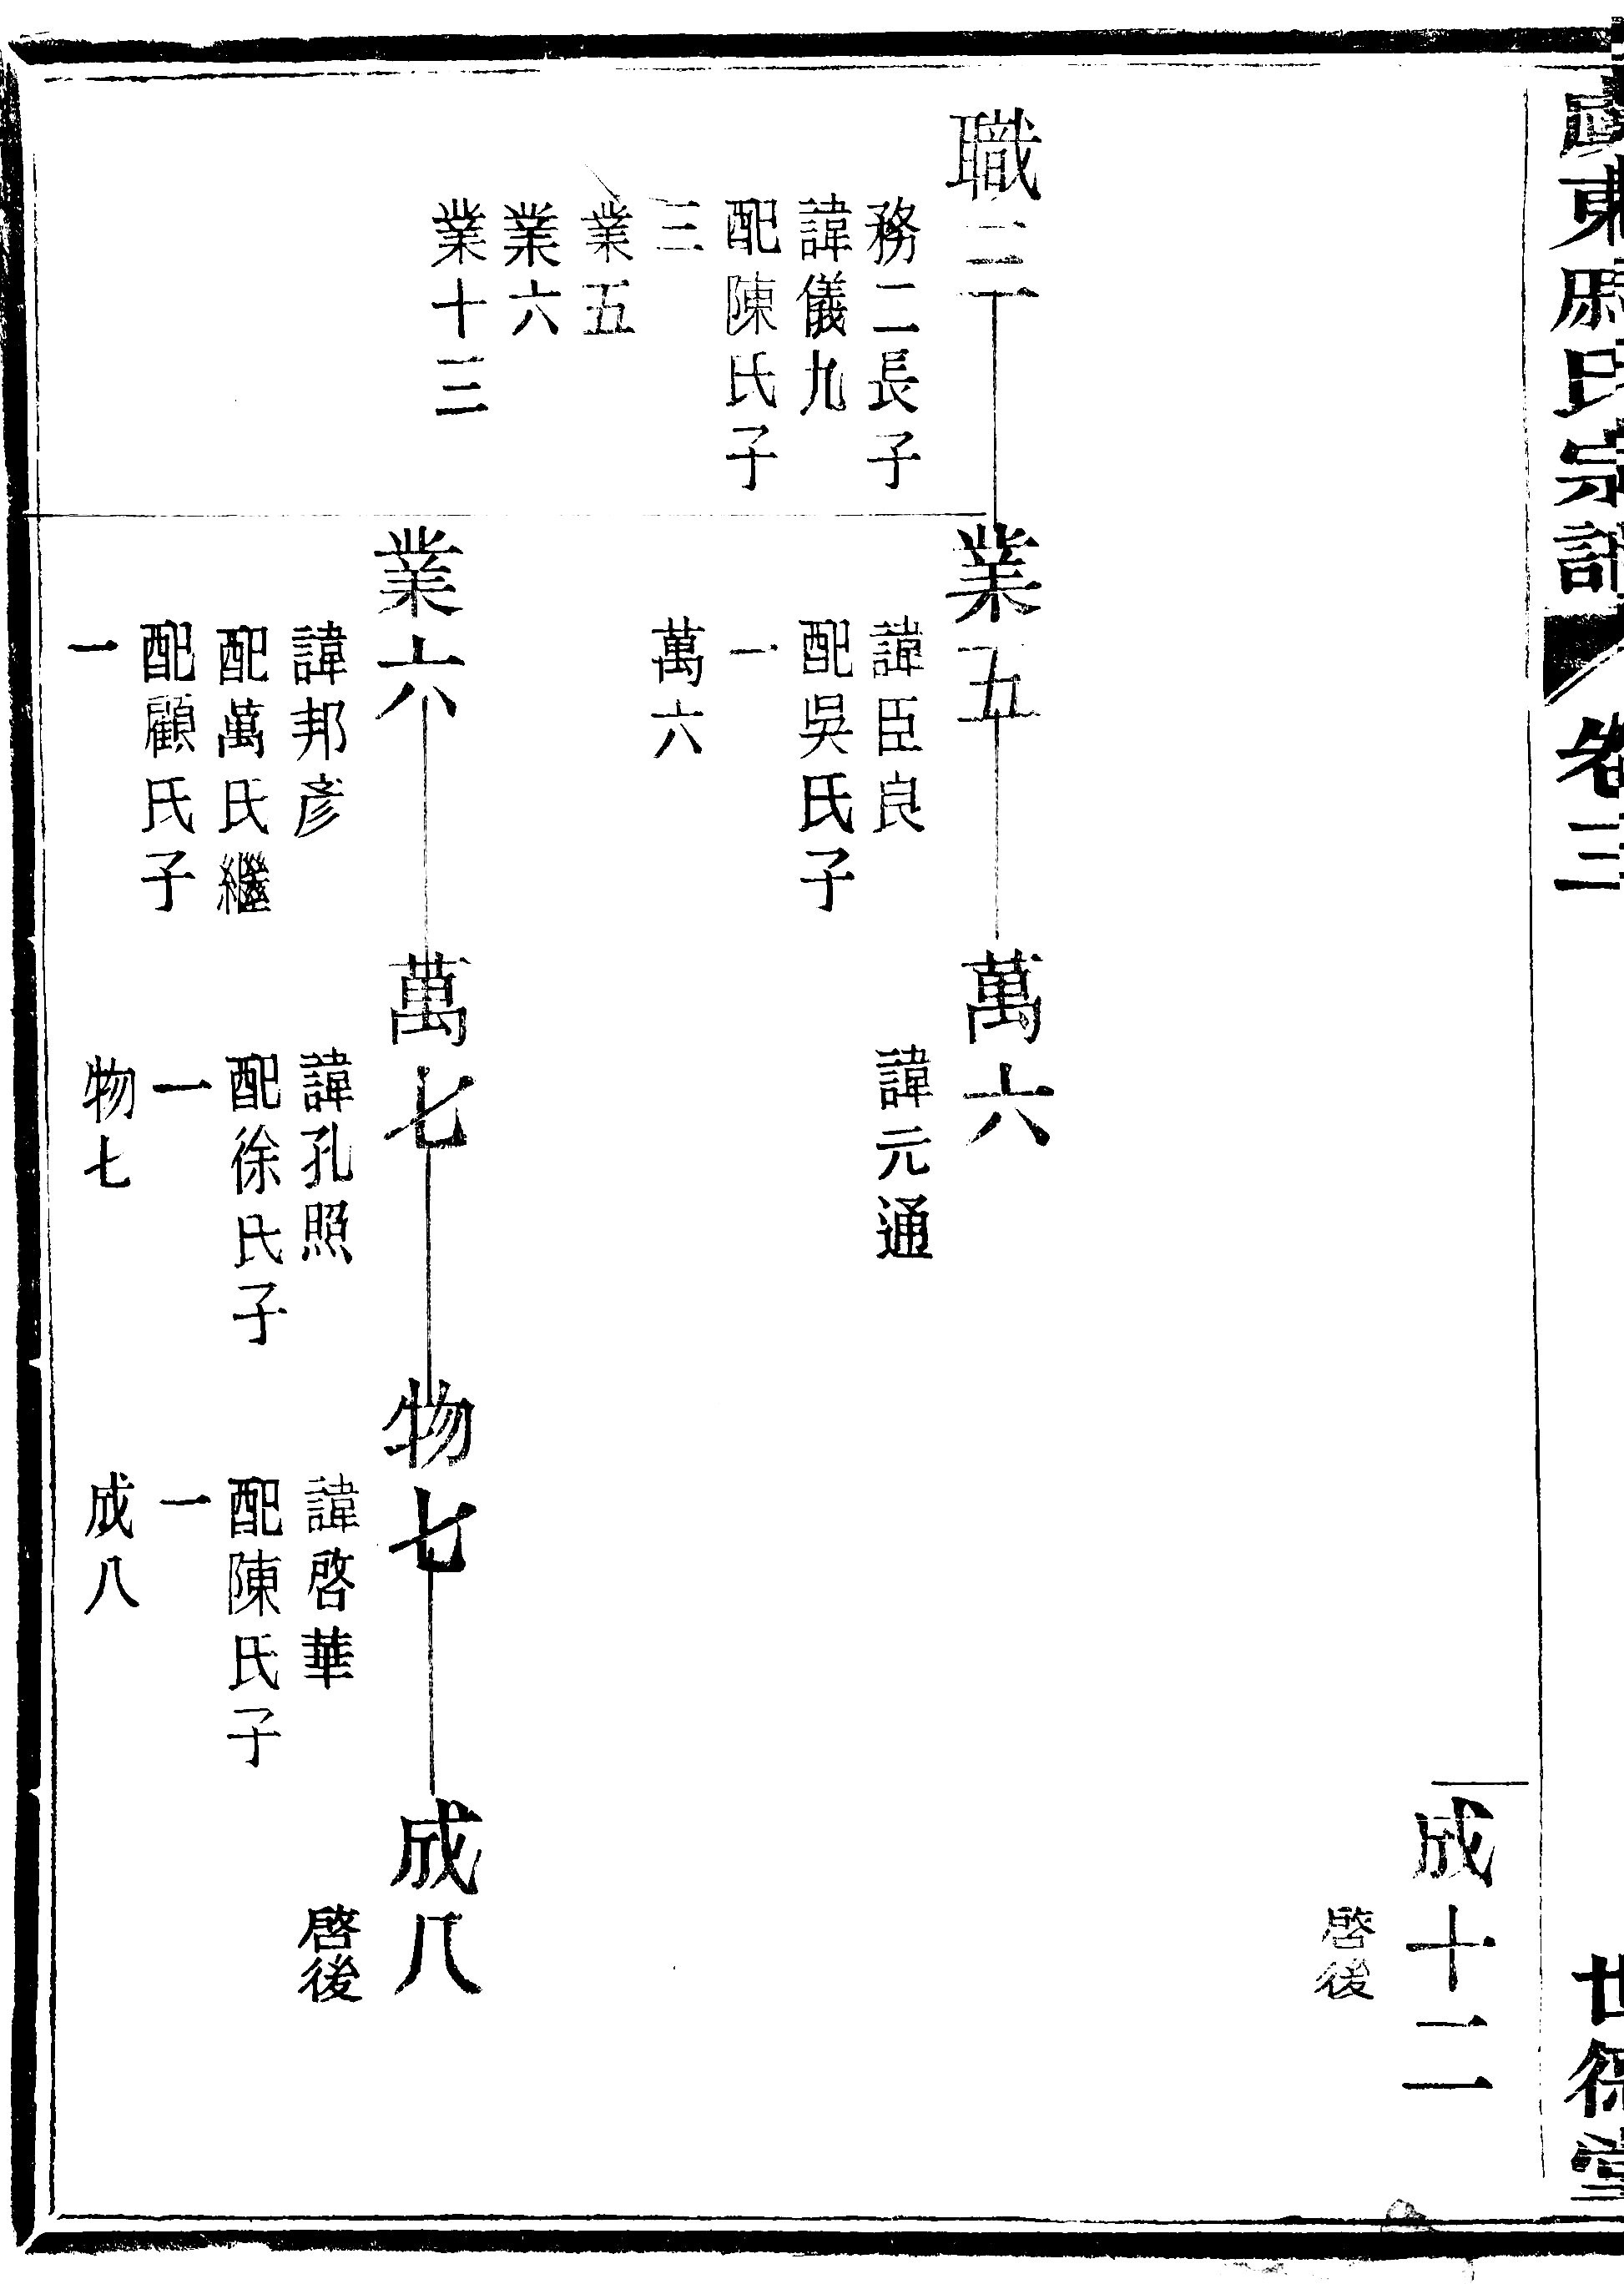 東
氏宗譜
卷三
世
堂
成十二
啓後
職三
務二長子
諱儀九
配陳氏子
三
業五
業六
業十三
業五
諱臣良
配吳氏子
一
萬六
萬六
諱元通
業六
諱邦彥
配萬氏繼
配顧氏子
一
萬七
諱孔照
配徐氏子
一
物七
物七
諱啓華
配陳氏子
一
成八
成八
啓後